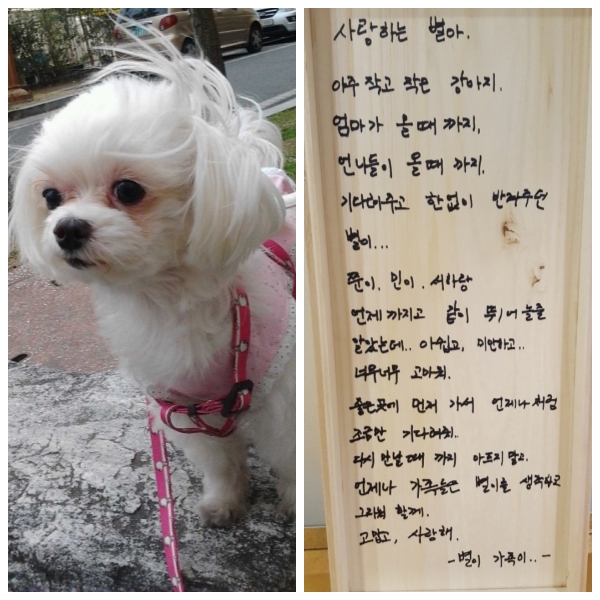 사랑하는 별아.
아주 작고 작은 강아지.
엄마가 올 때 까지,
언니들이 올 때 까지.
기다려주고 한없이 반겨주던
별이...
쭌이, 민이,
언제까지고 같이 뛰어 놀줄
알았는데.. 아쉽고, 미안하고..
너무너무 고마워.
좋은곳에 먼저 가서 언제나처럼
조금만 기다려줘..
다시 만날때 까지 아프지 말고.
언제나 가족들은 별이를 생각하고
그리워 할께.
고맙고, 사랑해.
-별이 가족이..-